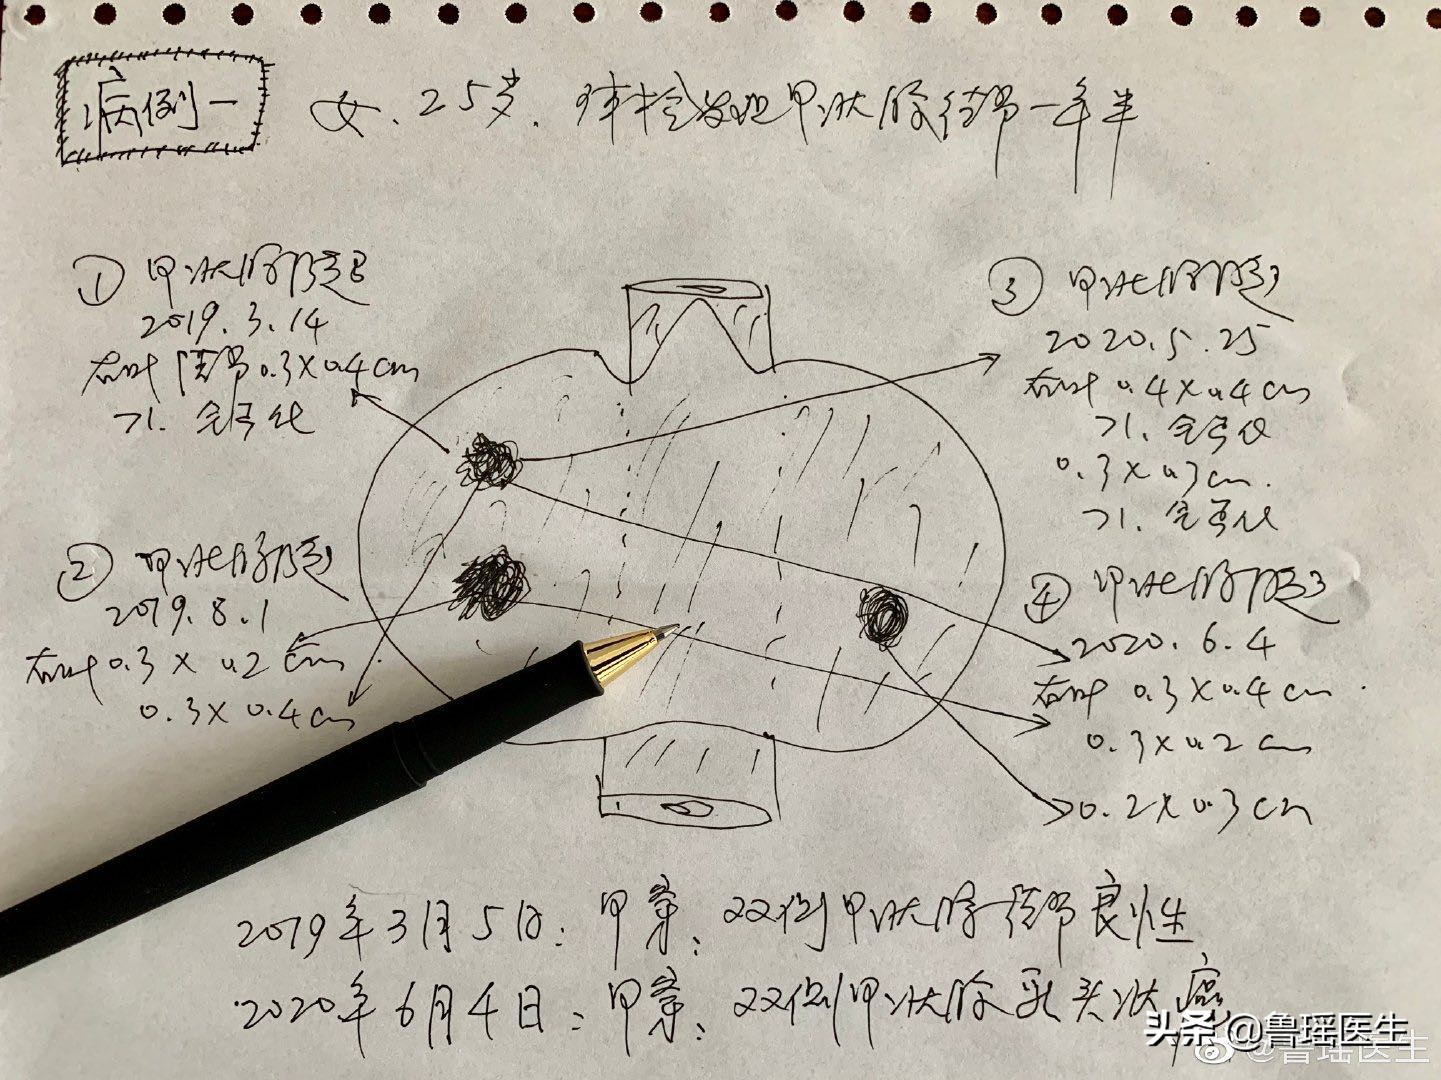 病例一
女、25岁、体检发现甲状腺结节一年半
① 甲状腺B超
2019.3.14
右叶结节0.3×0.4cm
含钙化
② 甲状腺B超
2019.8.1
右叶0.3×0.2cm
0.3×0.4cm
③ 甲状腺B超
2020.5.25
右叶0.4×0.4cm
含钙化
0.3×0.3cm.
含钙化
④ 甲状腺B超
2020.6.4
右叶 0.3×0.4cm.
0.3×0.2cm
0.2×0.3cm
2019年3月5日:甲穿:双侧甲状腺结节良性
2020年6月4日:甲穿:双侧甲状腺乳头状癌
头条@鲁瑶医生
@鲁瑶医生